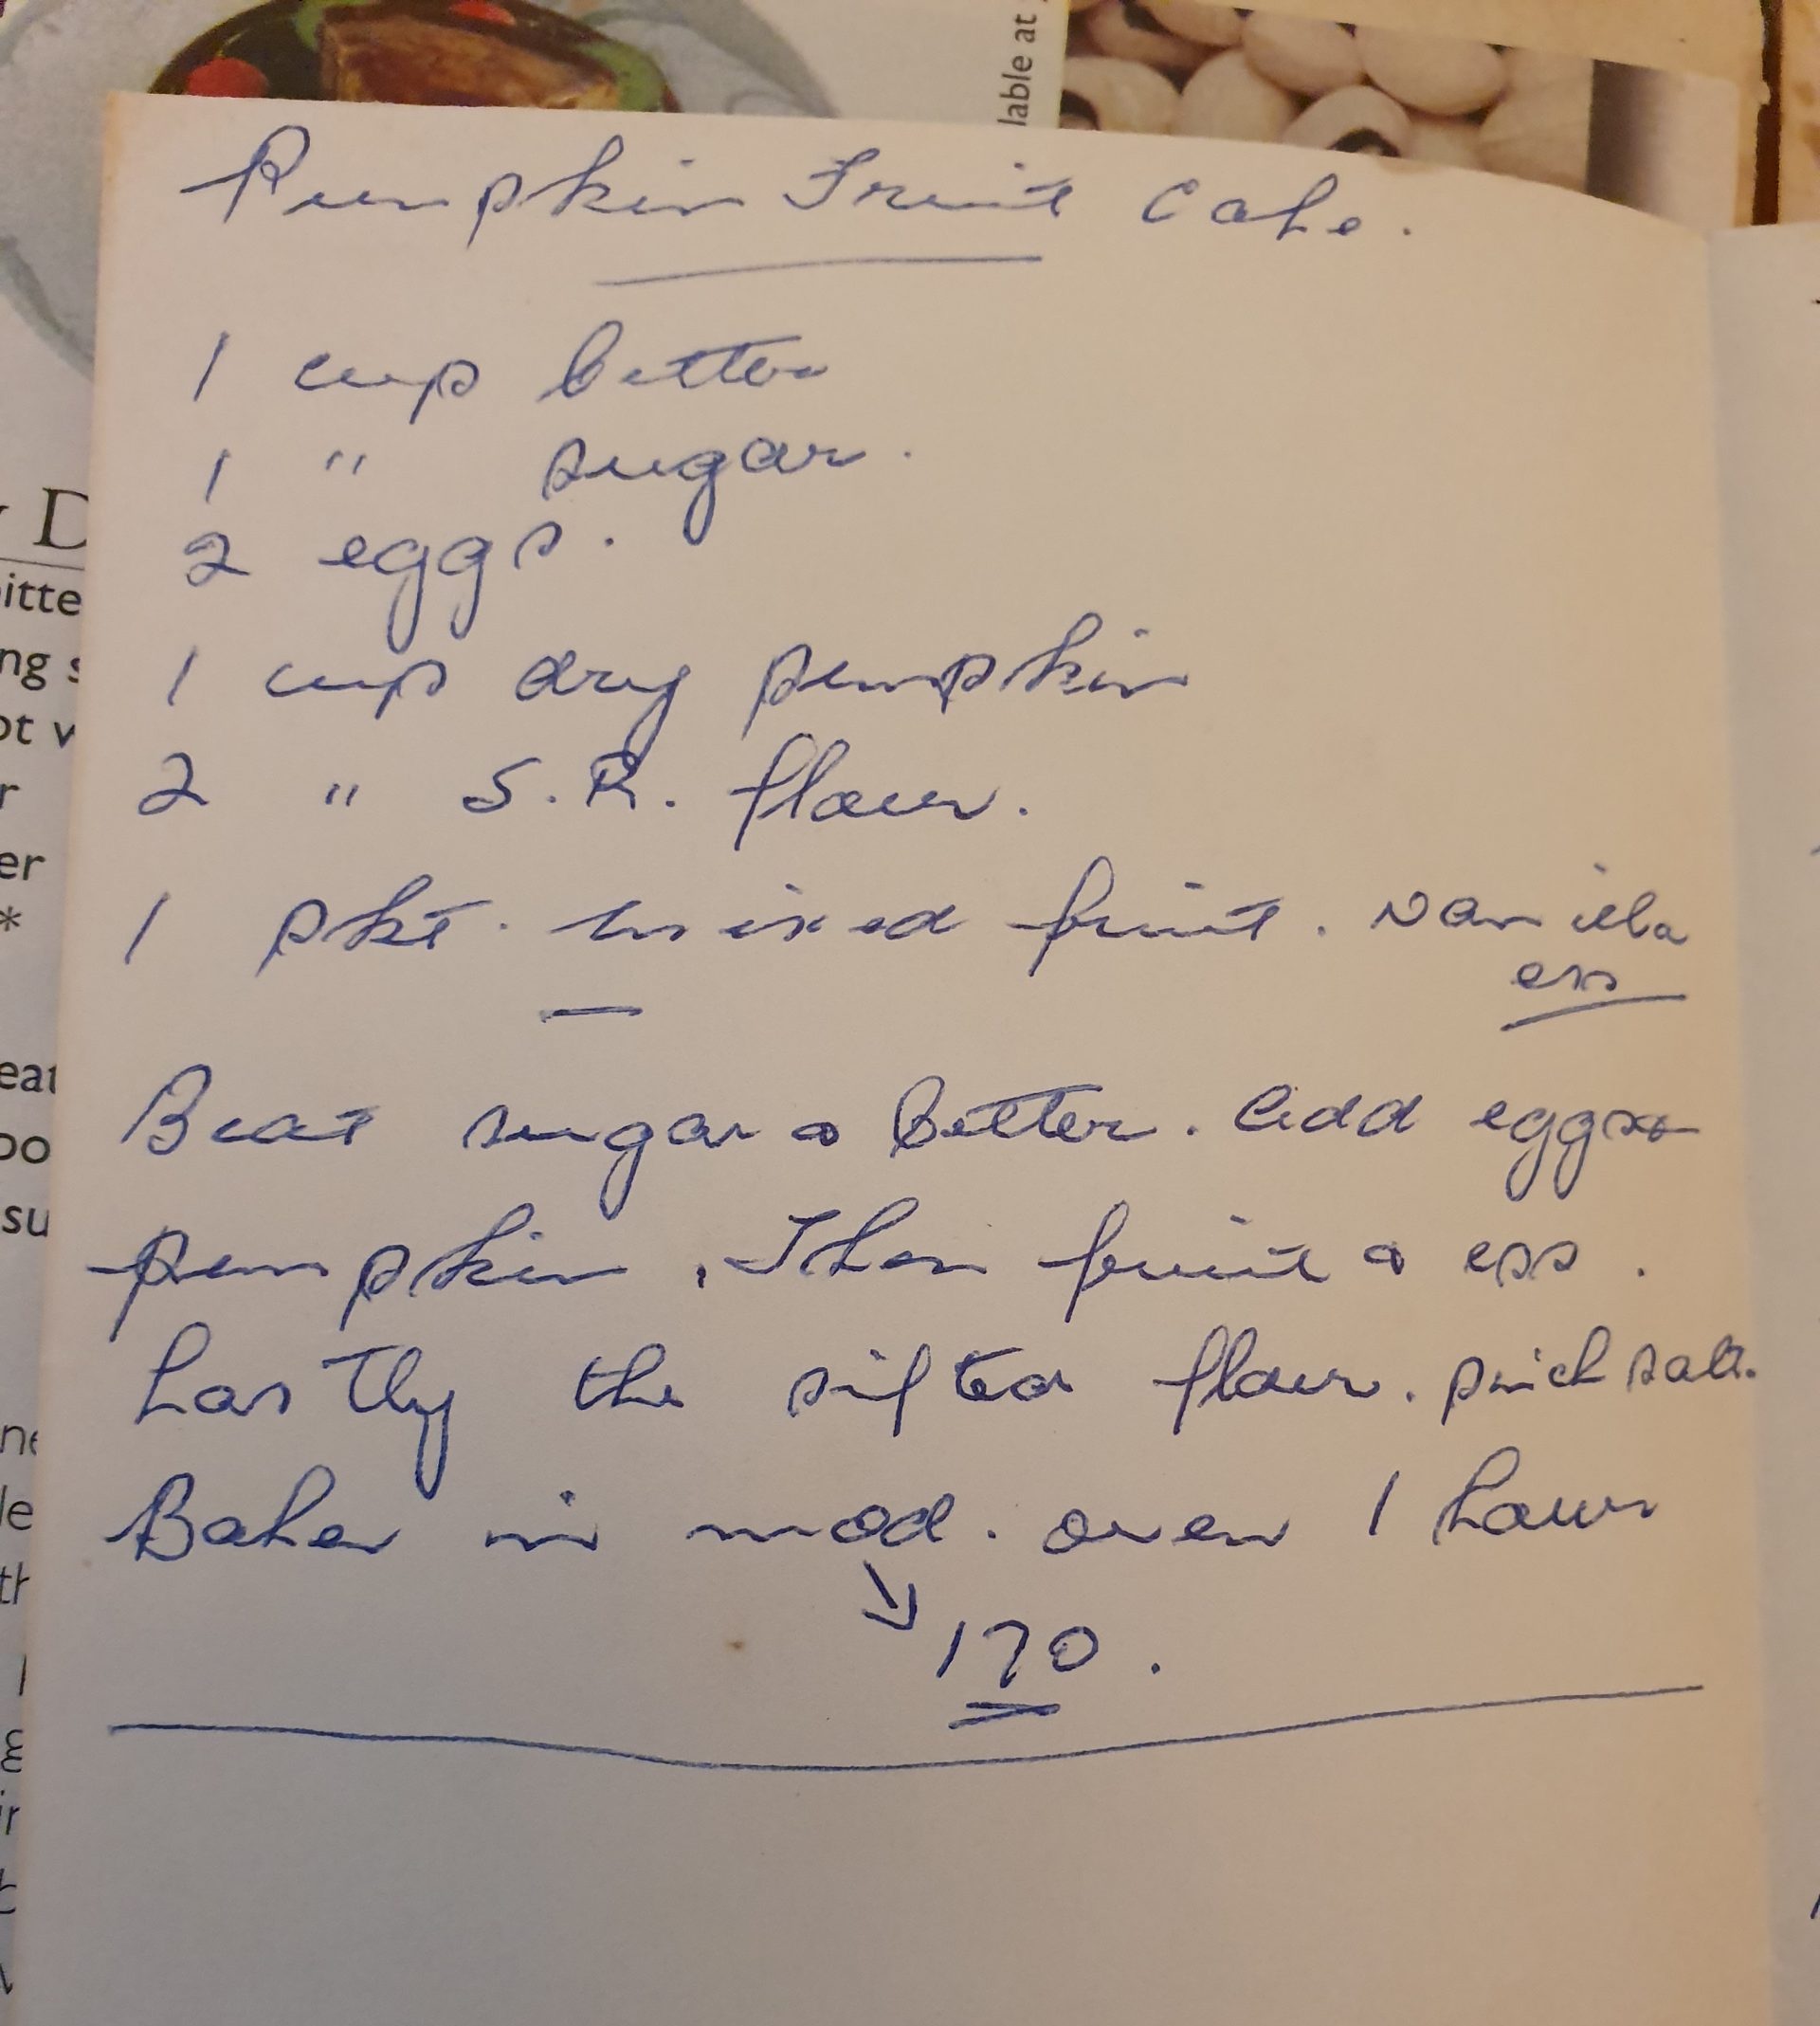 lable at
Pumpkin Fruit Cake.
1 cup butter
1 " sugar.
2 eggs.
1 cup dry pumpkin
2 " S.R. flour.
1 pkt. mixed fruit. vanilla
ess
Beat sugar & butter. Add eggs &
pumpkin. Then fruit & ess.
Lastly the sifted flour. pinch salt.
Bake in mod. oven 1 hour
170.
D
itte
ng s
ot v
r
er
*
eat
oo
su
ne
le
th